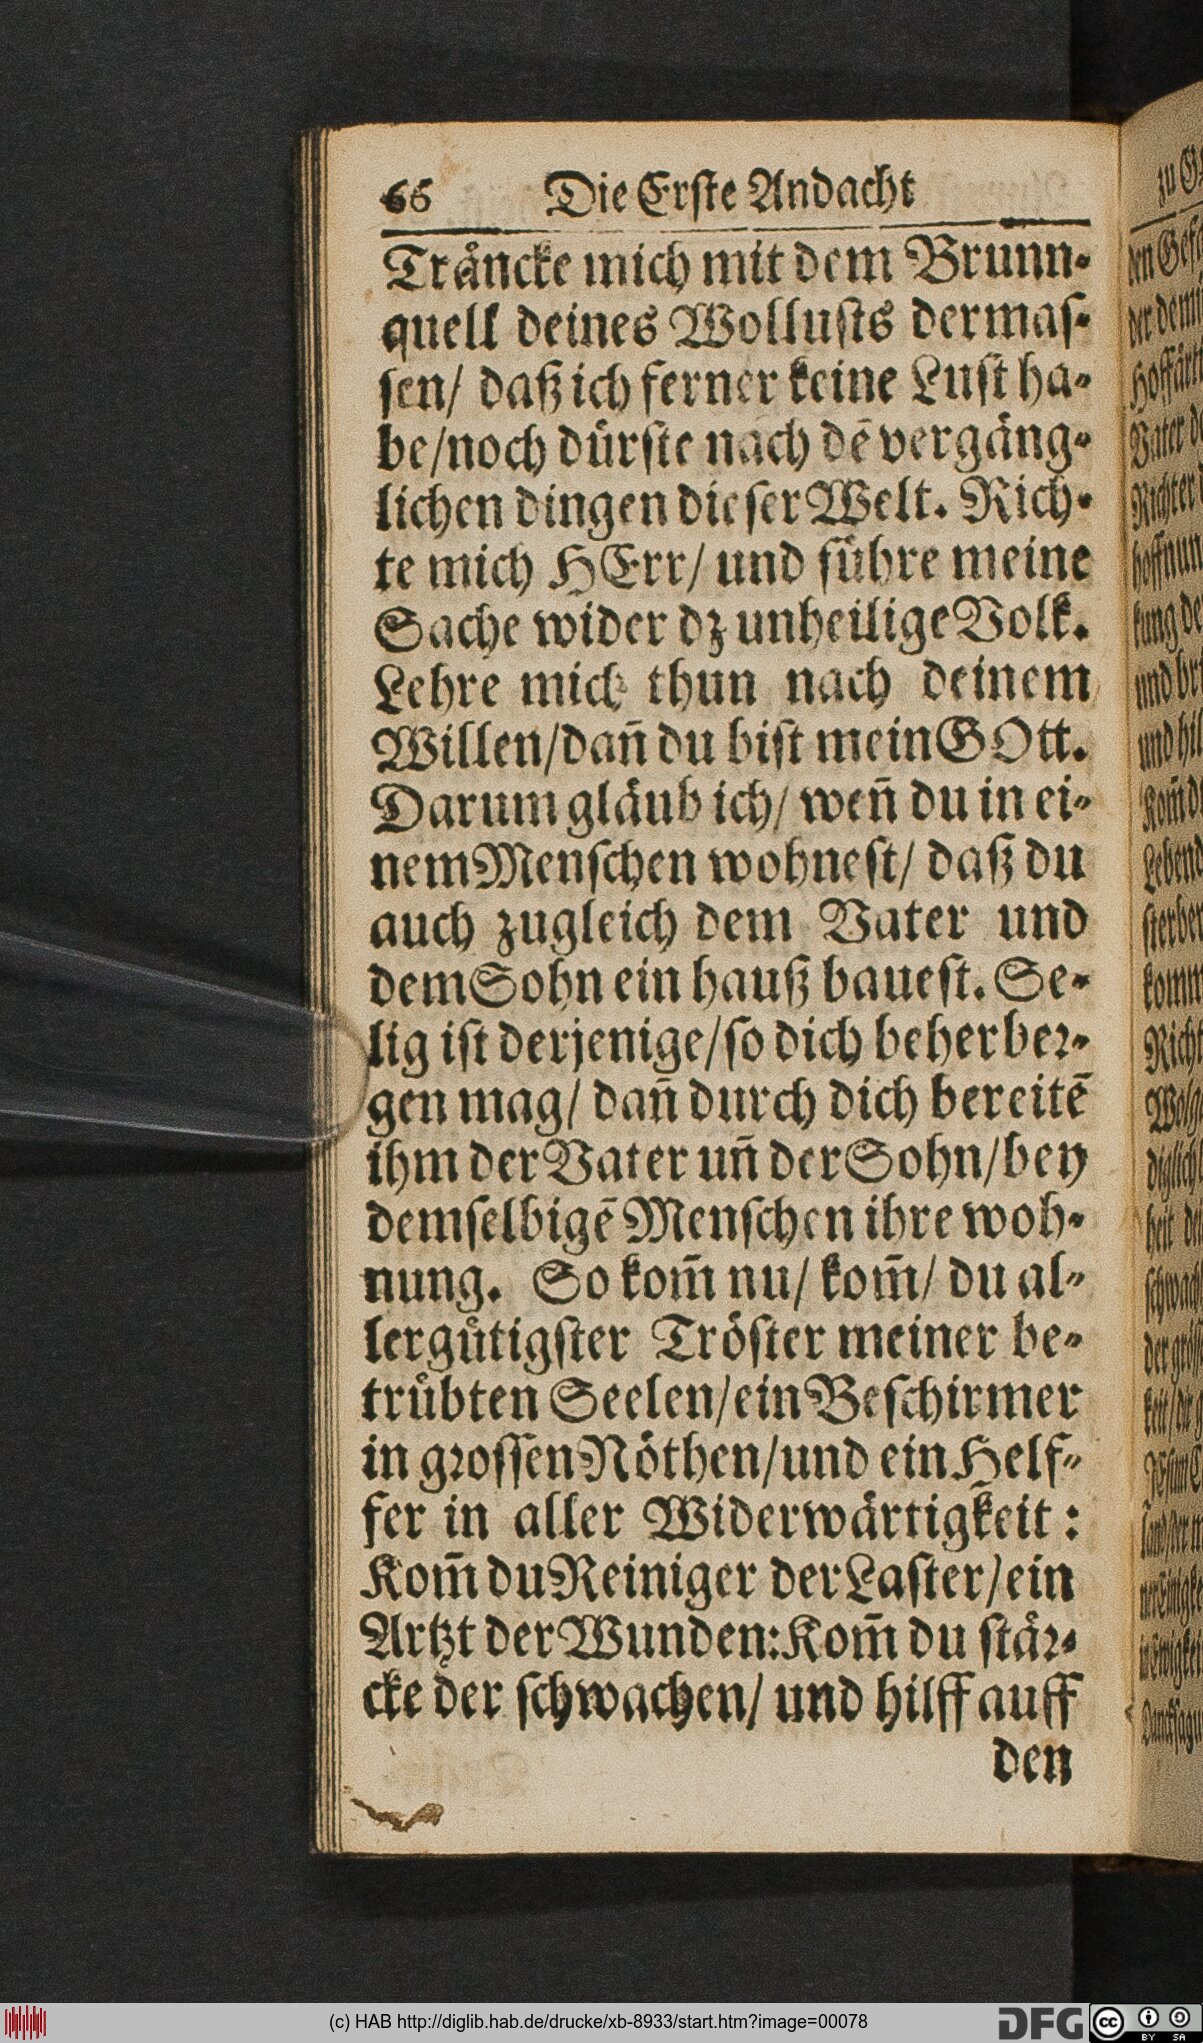 66 Die Erſte Andacht
Traͤncke mich mit dem Brunn⸗
quell deines Wolluſts dermaſ⸗
ſen/ daß ich ferner keine Luſt ha⸗
be/noch duͤrſte nach dẽ vergaͤng⸗
lichen dingen dieſer Welt. Rich⸗
te mich HErr/ und fuͤhre meine
Sache wider dz unheilige Volk.
Lehre mich thun nach deinem
Willen/dañ du biſt mein GOtt.
Darum glaͤub ich/ weñ du in ei⸗
nem Menſchen wohneſt/ daß du
auch zugleich dem Vater und
dem Sohn ein hauß baueſt. Se⸗
lig iſt derjenige/ſo dich beherber⸗
gen mag/ dañ durch dich bereitẽ
ihm der Vater uñ der Sohn/bey
demſelbigẽ Menſchen ihre woh⸗
nung. So kom̃ nu/ kom̃/ du al⸗
lerguͤtigſter Troͤſter meiner be⸗
truͤbten Seelen/ein Beſchirmer
in groſſen Noͤthen/und ein Helf⸗
fer in aller Widerwaͤrtigkeit:
Kom̃ du Reiniger der Laſter/ein
Artzt der Wunden: Kom̃ du ſtaͤr⸗
cke der ſchwachen/ und hilff auff
den
zu G
den Geſ
Vater d
Richter
hoffnun
kung de
und
und hil
Kom̃ d
Lebend
ſterben
komm
Richt
heit
(c) HAB http://diglib.hab.de/drucke/xb-8933/start.htm?image=00078
DFG
cc
BY SA